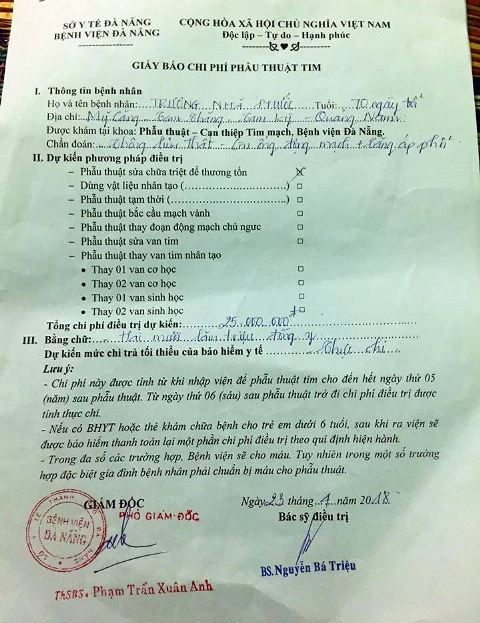 SỞ Y TẾ ĐÀ NẴNG
BỆNH VIỆN ĐÀ NẴNG
CỘNG HÒA XÃ HỘI CHỦ NGHĨA VIỆT NAM
Độc lập – Tự do – Hạnh phúc
GIẤY BÁO CHI PHÍ PHẪU THUẬT TIM
I. Thông tin bệnh nhân
Họ và tên bệnh nhân: TRƯƠNG NHÃ PHƯỚC Tuổi: 70 ngày tuổi
Địa chỉ: Mỹ Cang - Tam Thăng - Tam Kỳ - Quảng Nam
Được khám tại khoa: Phẫu thuật – Can thiệp Tim mạch, Bệnh viện Đà Nẵng.
Chẩn đoán: Thông liên thất - Còn ống động mạch + tăng áp phổi
II. Dự kiến phương pháp điều trị
– Phẫu thuật sửa chữa triệt để thương tổn
– Dùng vật liệu nhân tạo (....................)
– Phẫu thuật tạm thời (....................)
– Phẫu thuật bắc cầu mạch vành
– Phẫu thuật thay đoạn động mạch chủ ngưc
– Phẫu thuật sửa van tim
– Phẫu thuật thay van tim nhân tạo
• Thay 01 van cơ học
• Thay 02 van cơ học
• Thay 01 van sinh học
• Thay 02 van sinh học
Tổng chi phí điều trị dự kiến: 25.000.000đ
III. Bằng chữ: Hai mươi lăm triệu đồng
Dự kiến mức chi trả tối thiểu của bảo hiểm y tế
Lưu ý:
- Chi phí này được tính từ khi nhập viện để phẫu thuật tim cho đến hết ngày thứ 05
(năm) sau phẫu thuật. Từ ngày thứ 06 (sáu) sau phẫu thuật trở đi chi phí điều trị được
tính thực chi.
- Nếu có BHYT hoặc thẻ khám chữa bệnh cho trẻ em dưới 6 tuổi, sau khi ra viện sẽ
được bảo hiểm thanh toán lại một phần chi phí điều trị theo qui định hiện hành.
- Trong đa số các trường hợp, Bệnh viện sẽ cho máu. Tuy nhiên trong một số trường
hợp đặc biệt gia đình bệnh nhân phải chuẩn bị máu cho phẫu thuật.
Ngày 23 tháng 4 năm 2018
GIÁM ĐỐC
PHÓ GIÁM ĐỐC
Bác sỹ điều trị
BỆNH VIỆN
ĐÀ NẴNG
ThSBS. Phạm Trần Xuân Anh
BS. Nguyễn Bá Triệu